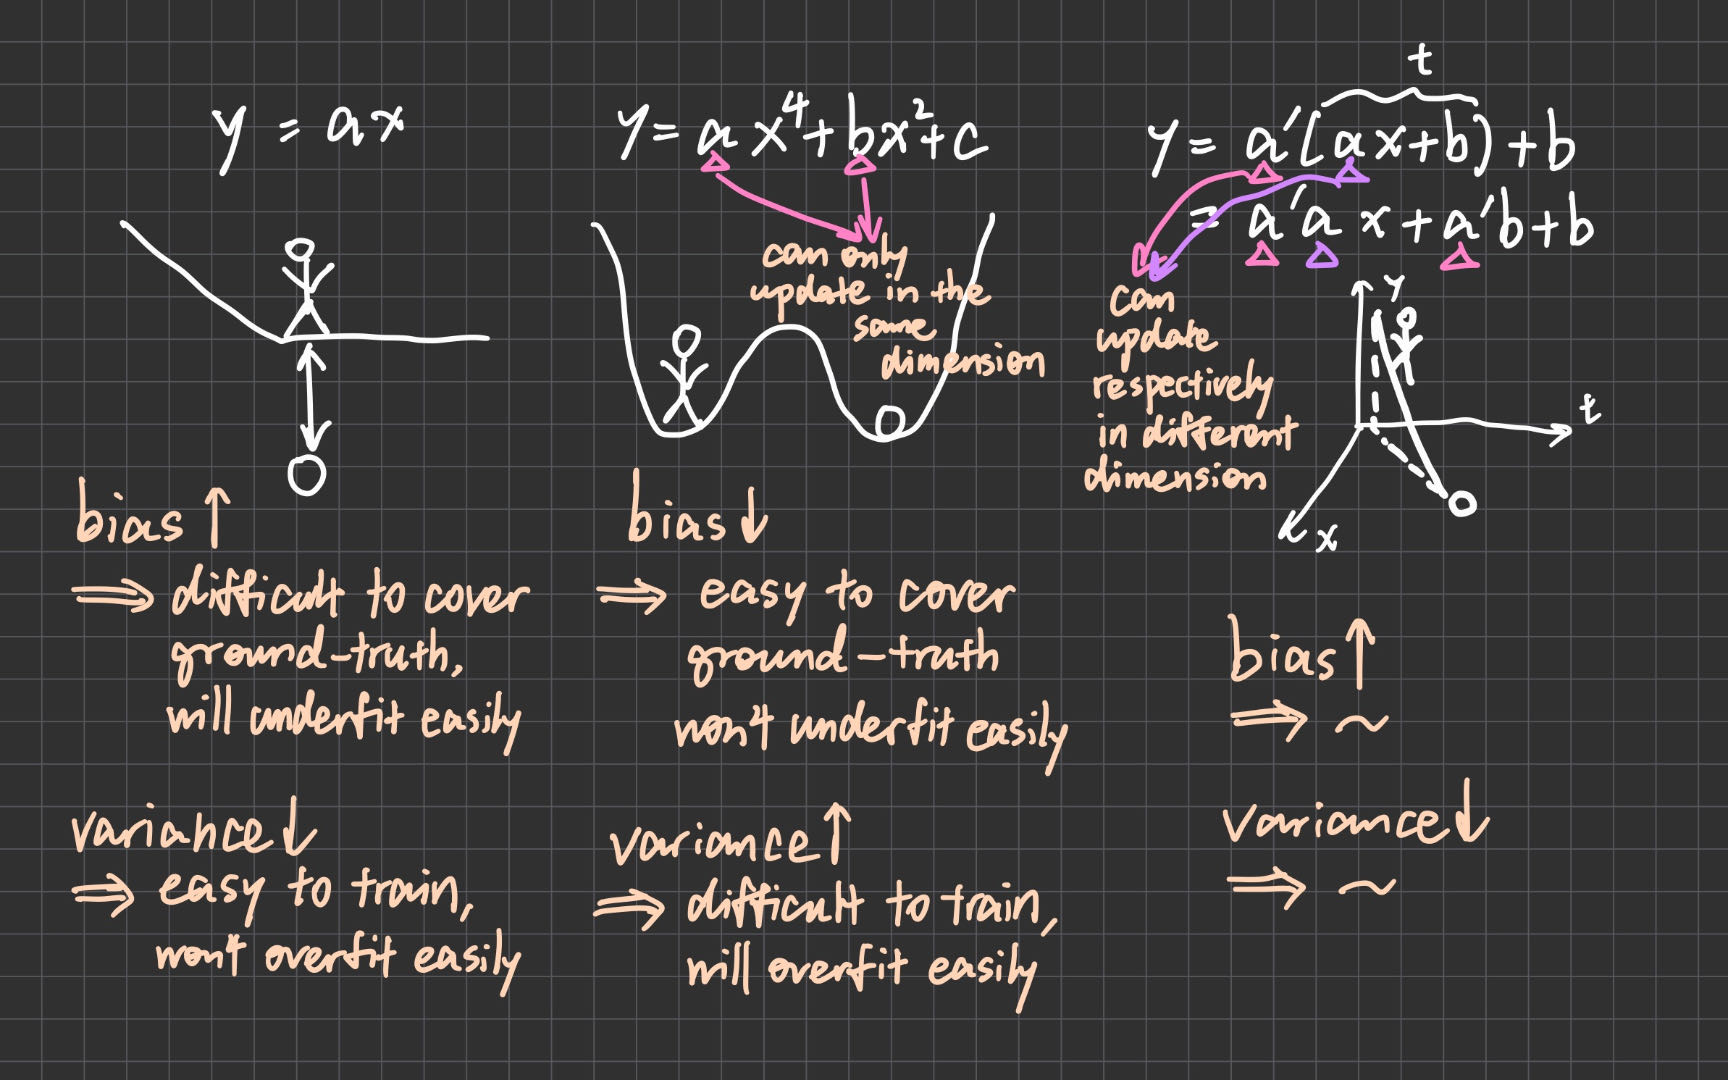 y = ax
bias ↑
⇒ difficult to cover
ground-truth,
will underfit easily
variance ↓
⇒ easy to train,
won't overfit easily
y = ax⁴ + bx² + c
can only
update in the
same
dimension
bias ↓
⇒ easy to cover
ground-truth
won't underfit easily
variance ↑
⇒ difficult to train,
will overfit easily
t
y = a'(ax+b) + b
= a'a x + a'b + b
can
update
respectively
in different
dimension
y
t
x
bias ↑
⇒ ~
variance ↓
⇒ ~